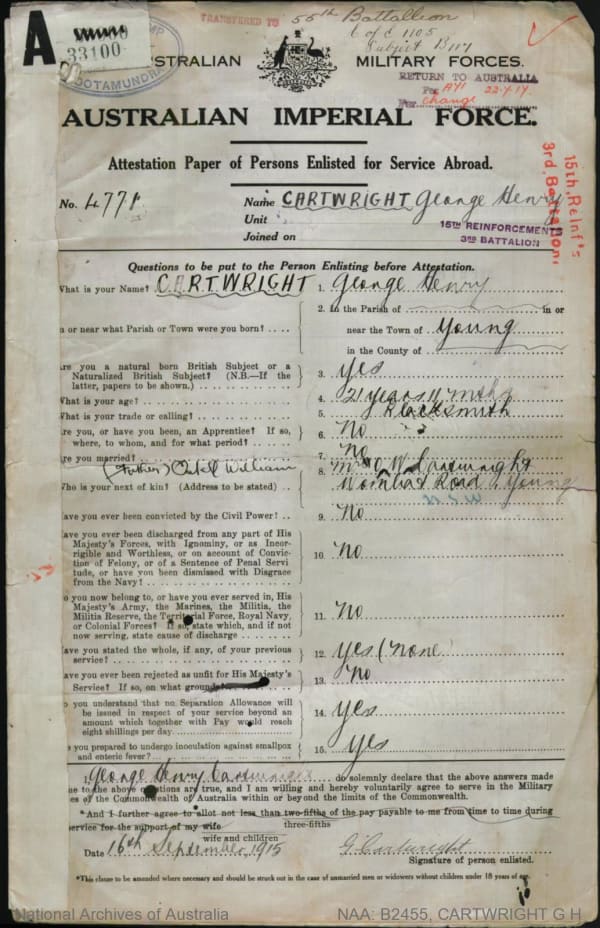 A
33100
TRANSFERRED TO 55th Battalion
C of C 1105
Subject B117
CAMP
COOTAMUNDRA
AUSTRALIAN MILITARY FORCES.
RETURN TO AUSTRALIA
Per 22.7.17.
For change
AUSTRALIAN IMPERIAL FORCE.
Attestation Paper of Persons Enlisted for Service Abroad.
15th Reinf's
3rd Battalion.
No. 4771 Name CARTWRIGHT George Henry
Unit
15TH REINFORCEMENTS
3RD BATTALION
Joined on
Questions to be put to the Person Enlisting before Attestation.
What is your Name? CARTWRIGHT 1. George Henry
2. In the Parish of in or
n or near what Parish or Town were you born? near the Town of Young
in the County of
re you a natural born British Subject or a
Naturalized British Subject? (N.B.—If the
latter, papers to be shown.) 3. yes
What is your age? 4. 21 years 11 mths
What is your trade or calling? 5. Blacksmith
re you, or have you been, an Apprentice? If so,
where, to whom, and for what period? 6. No
re you married? 7. No
(Father) William
Who is your next of kin? (Address to be stated) 8. Mr O W Cartwright
Wombat Road Young
N.S.W
ave you ever been convicted by the Civil Power? 9. No
ave you ever been discharged from any part of His
Majesty's Forces, with Ignominy, or as Incor-
rigible and Worthless, or on account of Convic-
tion of Felony, or of a Sentence of Penal Servi
tude, or have you been dismissed with Disgrace
from the Navy? 10. No
o you now belong to, or have you ever served in, His
Majesty's Army, the Marines, the Militia, the
Militia Reserve, the Territorial Force, Royal Navy,
or Colonial Forces? If so, state which, and if not
now serving, state cause of discharge 11. No
ave you stated the whole, if any, of your previous
service? 12. yes (none)
ave you ever been rejected as unfit for His Majesty's
Service? If so, on what grounds? 13. No
o you understand that no Separation Allowance will
be issued in respect of your service beyond an
amount which together with Pay would reach
eight shillings per day 14. yes
re you prepared to undergo inoculation against smallpox
and enteric fever? 15. yes
I, George Henry Cartwright do solemnly declare that the above answers made
me to the above questions are true, and I am willing and hereby voluntarily agree to serve in the Military
es of the Commonwealth of Australia within or beyond the limits of the Commonwealth.
*And I further agree to allot not less than two-fifths of the pay payable to me from time to time during
three-fifths
service for the support of my wife
wife and children
Date 16th September 1915 G Cartwright
Signature of person enlisted.
*This clause to be amended where necessary and should be struck out in the case of unmarried men or widowers without children under 18 years of age.
National Archives of Australia NAA: B2455, CARTWRIGHT G H